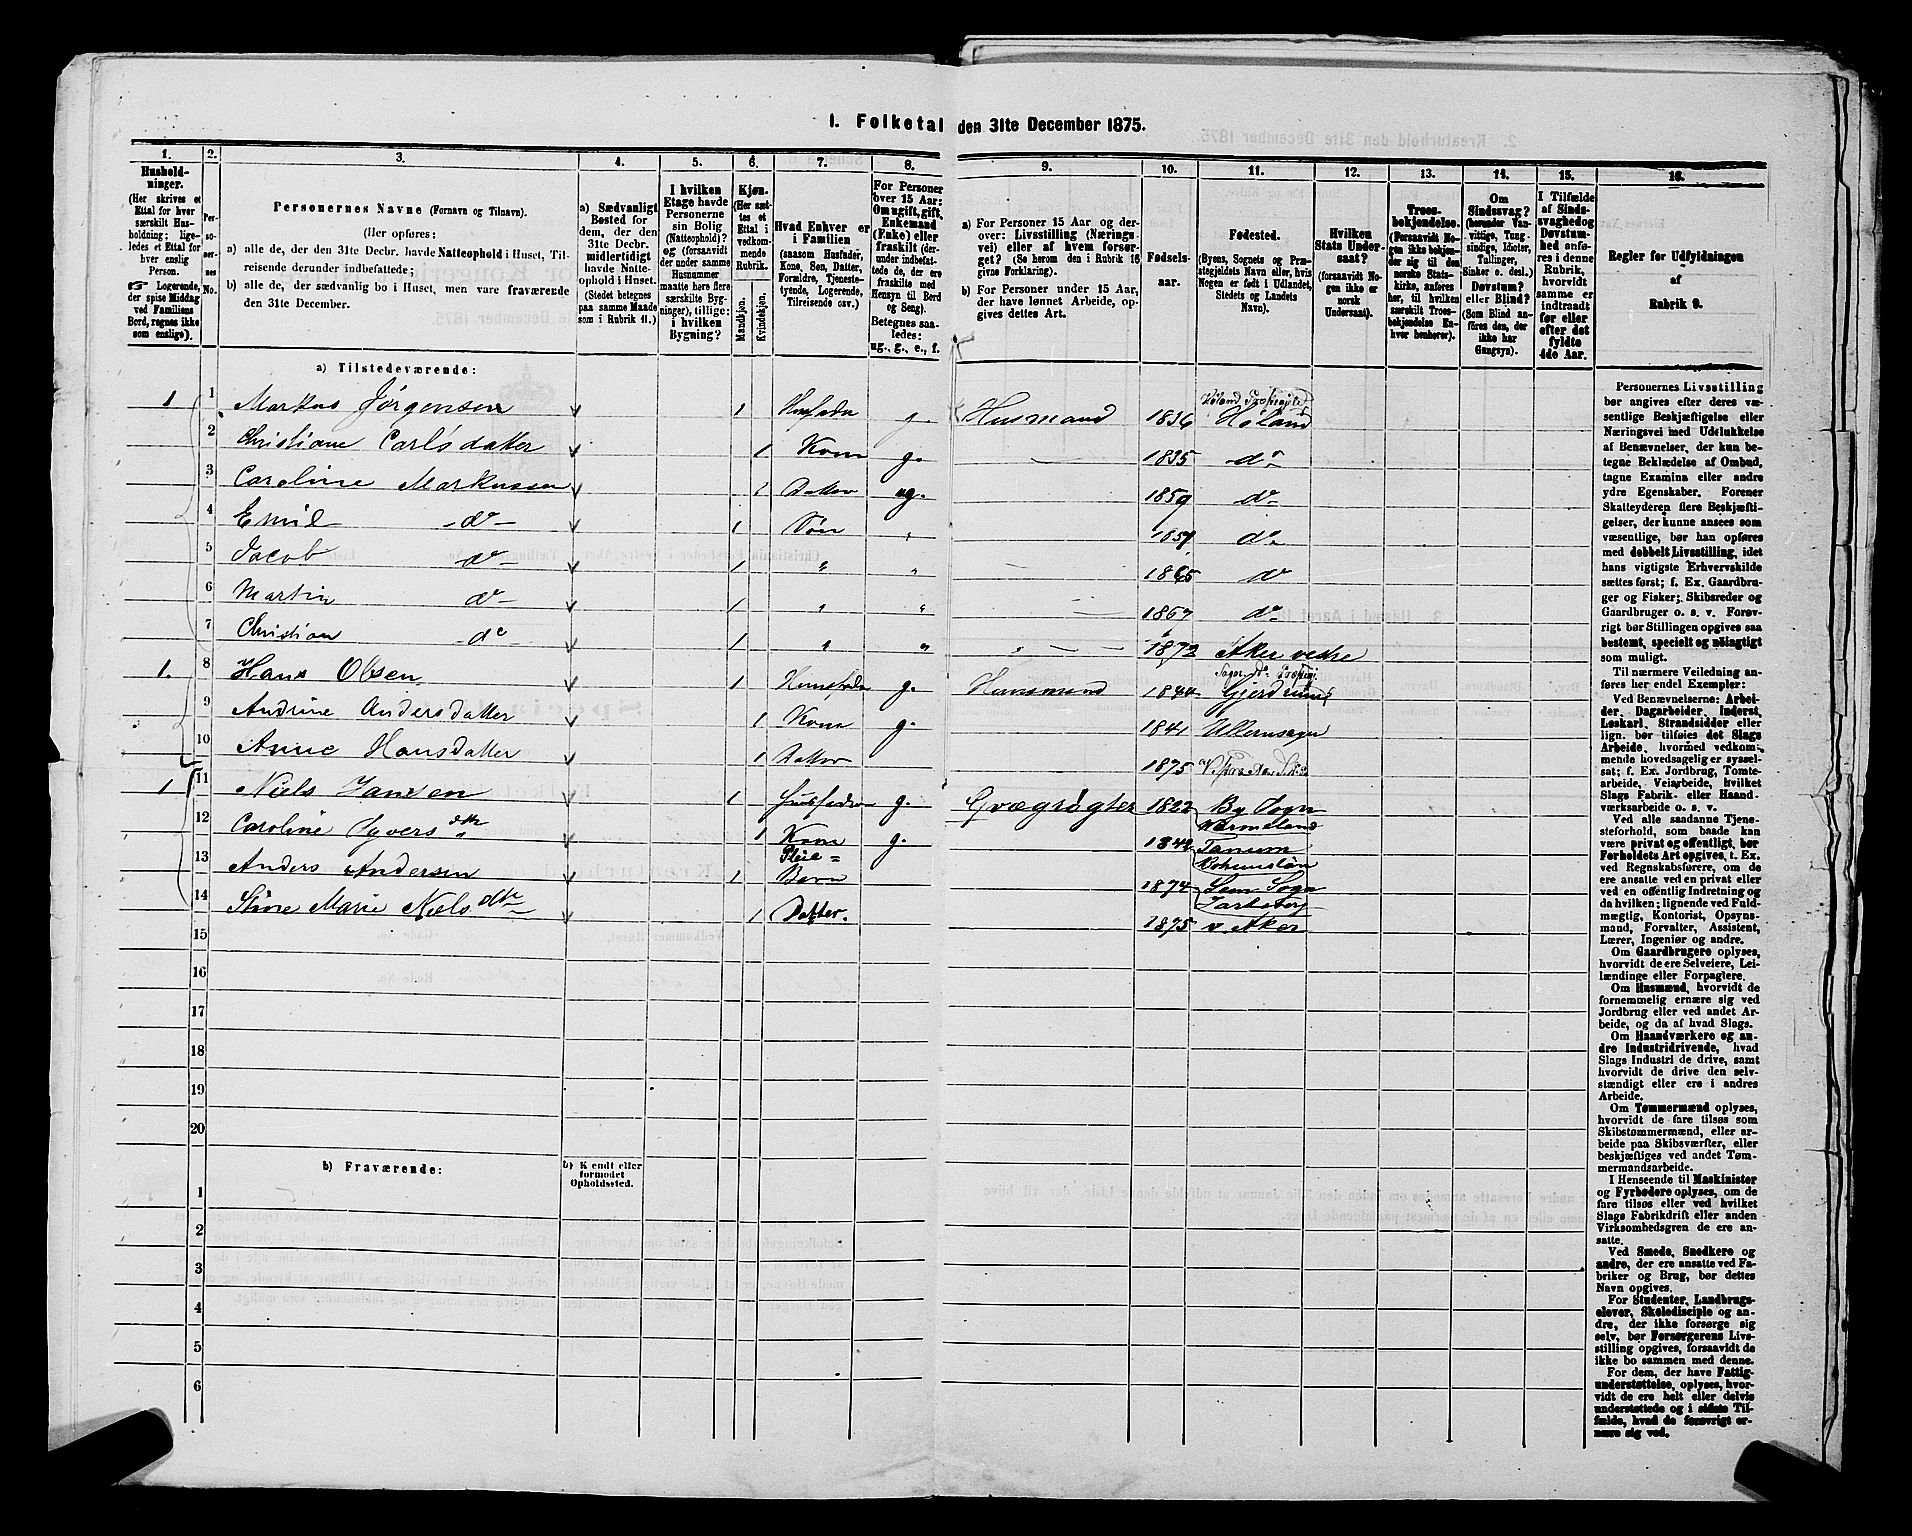 1. Folketal den 31te December 1875.
1. 2. 3. 4. 5. 6. 7. 8. 9. 10. 11. 12. 13. 14. 15. 16.
Hushold-
ninger.
(Her skrives et
Ettal for hver
særskilt Hus-
holdning; lige-
ledes et Ettal for
hver enslig
Person.
☞ Logerende,
der spise Middag
ved Familiens
Bord, regnes ikke
som enslige).
Per-
so-
ner-
nes
No.
Personernes Navne (Fornavn og Tilnavn).
(Her opføres:
a) alle de, der den 31te Decbr. havde Natteophold i Huset, Til-
reisende derunder indbefattede;
b) alle de, der sædvanlig bo i Huset, men vare fraværende
den 31te December.
a) Sædvanligt
Bosted for
dem, der den
31te Decbr.
midlertidigt
havde Natte-
ophold i Huset.
(Stedet betegnes
paa samme Maade
som i Rubrik 11.)
I hvilken
Etage havde
Personerne
sin Bolig
(Natteophold)?
og (forsaavidt
der under samme
Husnummer
maatte høre flere
særskilte Byg-
ninger), tillige:
i hvilken
Bygning?
Kjøn.
(Her sæt-
tes et
Ettal i
vedkom-
mende
Rubrik.
Mandkjøn.
Kvindekjøn.
Hvad Enhver er
i Familien
(saasom Husfader,
Kone, Søn, Datter,
Forældre, Tjeneste-
tyende, Logerende,
Tilreisende osv.)
For Personer
over 15 Aar:
Om ugift, gift,
Enkemand
(Enke) eller
fraskilt (der-
under indbefat-
tede de, der ere
fraskilte med
Hensyn til Bord
og Seng).
Betegnes saa-
ledes:
ug., g., e., f.
a) For Personer 15 Aar og der-
over: Livsstilling (Nærings-
vei) eller af hvem forsør-
get? (Se herom den i Rubrik 16
givne Forklaring).
b) For Personer under 15 Aar,
der have lønnet Arbeide, op-
gives dettes Art.
Fødsels-
aar.
Fødested.
(Byens, Sognets og Præ-
stegjeldets Navn eller, hvis
Nogen er født i Udlandet,
Stedets og Landets
Navn).
Hvilken
Stats Under-
saat?
(forsaavidt No-
gen ikke er
norsk
Undersaat).
Troes-
bekjendelse.
(Forsaavidt No-
gen ikke bekjen-
der sig til den
norske Stats-
kirke, anføres
her, til hvilken
særskilt Troes-
bekjendelse En-
hver henhører).
Om
Sindssvag?
(herunder Van-
vittige, Tung-
sindige, Idioter,
Tullinger,
Sinker o. desl.)
Døvstum?
eller Blind?
(Som Blind an-
føres den, der
ikke har
Gangsyn).
I Tilfælde
af Sinds-
svaghed og
Døvstum-
hed anfø-
res i denne
Rubrik,
hvorvidt
samme er
indtraadt
før eller
efter det
fyldte
4de Aar.
Regler for Udfyldningen
af
Rubrik 9.
a) Tilstedeværende:
1 1 Markus Jørgensen 1 g. Husmand 1836 Høland
2 Christiane Carlsdatter 1 Kone g. 1835 do
3 Caroline Markussen 1 Datter ug. 1859 do
4 Emil do 1 Søn do
5 Jacob do 1 " " 1865 do
6 Martin do 1 " " 1867 do
7 Christian do 1 " " 1872 Aker vestre
1. 8 Hans Olsen 1 g. Husmand 1844 Gjerdrum
9 Andrine Andersdatter 1 Kone g. 1841 Ullensager
10 Anne Hansdatter 1 Datter 1875
1 11 Niels Jansen 1 g. Qvægrøgter 1822 By Sogn
Värmeland
12 Caroline Syversdtr 1 Kone g. Tanum
Bohuslän
13 Anders Andersen 1 Pleie=
Barn 1874 Sem Sogn
Jarlsberg
14 Stine Marie Nielsdtr 1 Datter. 1875 v. Aker
15
16
17
18
19
20
b) Fraværende:
b) Kjendt eller
formodet
Opholdssted.
1
2
3
4
5
6
Personernes Livsstilling
bør angives efter deres væ-
sentlige Beskjæftigelse eller
Næringsvei med Udelukkelse
af Benævnelser, der kun be-
tegne Beklædelse af Ombud,
tagne Examina eller andre
ydre Egenskaber. Forener
Skatteyderen flere Beskjæfti-
gelser, der kunne ansees som
væsentlige, bør han opføres
med dobbelt Livsstilling, idet
hans vigtigste Erhvervskilde
sættes først; f. Ex. Gaardbru-
ger og Fisker; Skibsreder og
Gaardbruger o. s. v. Forøv-
rigt bør Stillingen opgives saa
bestemt, specielt og nøiagtigt
som muligt.
Til nærmere Veiledning an-
føres her endel Exempler:
Ved Benævnelserne: Arbei-
der, Dagarbeider, Inderst,
Løskarl, Strandsidder eller
lign. bør tilføies det Slags
Arbeide, hvormed vedkom-
mende hovedsagelig er syssel-
sat; f. Ex. Jordbrug, Tomte-
arbeide, Veiarbeide, hvilket
Slags Fabrik- eller Haand-
værksarbeide o. s. v.
Ved alle saadanne Tjene-
steforhold, som baade kan
være privat og offentlig, bør
Forholdets Art opgives, t. Ex.
ved Regnskabsførere, om de
ere ansatte ved en privat eller
ved en offentlig Indretning og
da hvilken; lignende ved Fuld-
mægtig, Kontorist, Opsyns-
mand, Forvalter, Assistent,
Lærer, Ingeniør og andre.
Om Gaardbrugere oplyses,
hvorvidt de ere Selveiere, Lei-
lændinge eller Forpagtere.
Om Husmænd, hvorvidt de
fornemmelig ernære sig ved
Jordbrug eller ved andet Ar-
beide, og da af hvad Slags.
Om Haandværkere og an-
dre Industridrivende, hvad
Slags Industri de drive, samt
hvorvidt de drive den selv-
stændigt eller ere i andres
Arbeide.
Om Tømmermænd oplyses,
hvorvidt de fare tilsøs som
Skibstømmermænd, eller ar-
beide paa Skibsværfter, eller
beskjæftiges ved andet Tøm-
mermandsarbeide.
I Henseende til Maskinister
og Fyrbødere oplyses, om de
fare tilsøs eller ved hvilket
Slags Fabrikdrift eller anden
Virksomhedsgren de ere an-
satte.
Ved Smede, Snedkere og
andre, der ere ansatte ved Fa-
briker og Brug, bør dettes
Navn opgives.
For Studenter, Landbrugs-
elever, Skoledisciple og an-
dre, der ikke forsørge sig
selv, bør Forsørgerens Livs-
stilling opgives, forsaavidt de
ikke bo sammen med denne.
For dem, der have Fattig-
understøttelse, oplyses, hvor-
vidt de ere helt eller delvis
understøttede og i sidste Til-
fælde, hvad de forøvrigt er-
nære sig ved.